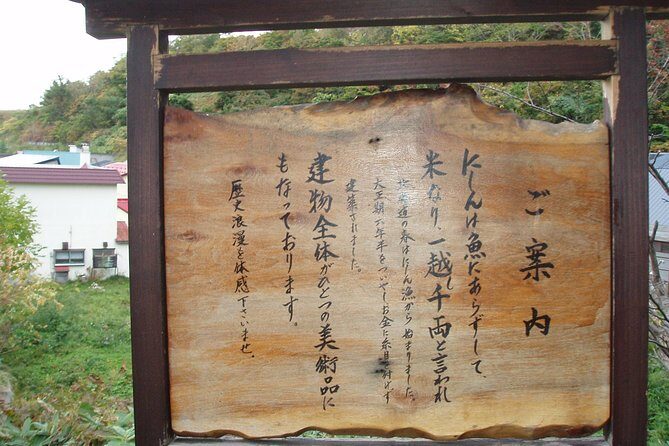 ご案内
にしんは魚にあらずして、
米なり、一越し千両と言われ
北海道の春はにしん漁から始まりました。
大正期六年半をついやしお金に糸目付けず
建築されました。
建物全体がひとつの美術品に
もなっております。
歴史浪漫を体感下さいませ。